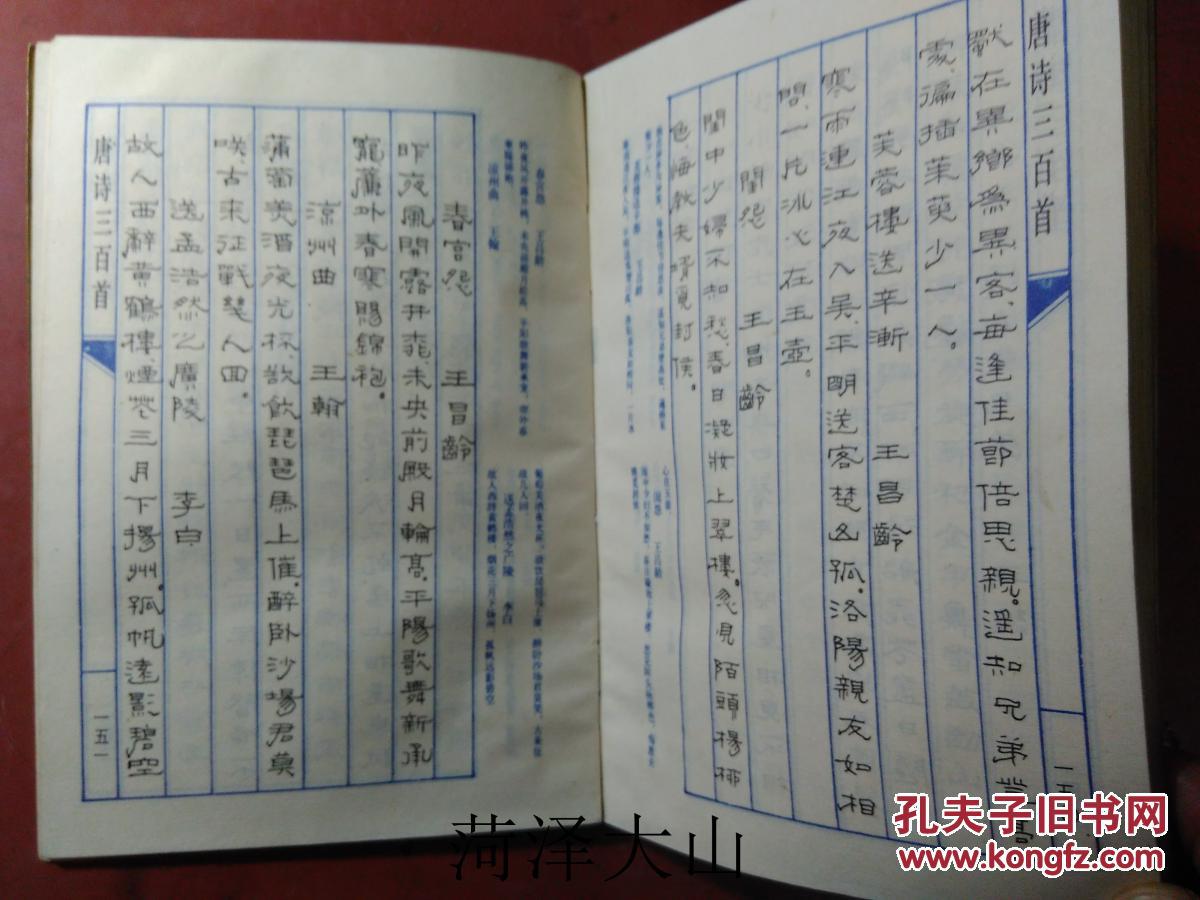 唐诗三百首
獨在異鄉爲異客、每逢佳節倍思親。遥知兄弟登高
處、徧插茱萸少一人。
芙蓉樓送辛漸 王昌齡
寒雨連江夜入吴、平明送客楚山孤。洛陽親友如相
問、一片冰心在玉壺。
閨怨 王昌齡
閨中少婦不知愁、春日凝妝上翠樓。忽見陌頭楊柳
色、悔教夫壻覓封侯。
春宫怨 王昌齡
昨夜風開露井桃、未央前殿月輪高。平陽歌舞新承
寵、簾外春寒賜錦袍。
涼州曲 王翰
蒲萄美酒夜光杯、欲飲琵琶馬上催。醉卧沙場君莫
咲、古來征戰幾人回。
送孟浩然之廣陵 李白
故人西辭黄鶴樓、煙花三月下揚州。孤帆遠影碧空
唐诗三百首
一五一
春宫怨 王昌龄
凉州曲 王翰
送孟浩然之广陵 李白
故人西辞黄鹤楼，烟花三月下扬州。孤帆远影碧空
闺怨 王昌龄
孔夫子旧书网
www.kongfz.com
菏泽大山